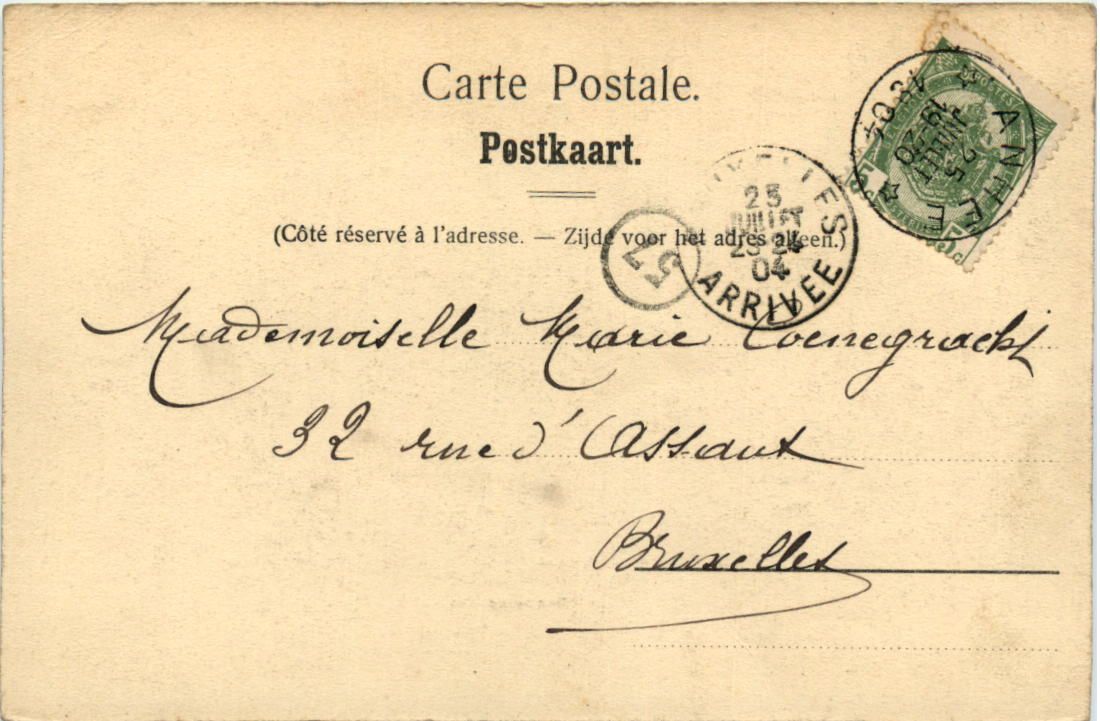 Carte Postale.
Postkaart.
(Côté réservé à l'adresse. — Zijde voor het adres alleen.)
ANHEE
25
JUILLET
19-20
1904
25
JUILLET
04
ARRIVEE
57
Mademoiselle Marie Coenegracht
32 rue d'Assaut
Bruxelles